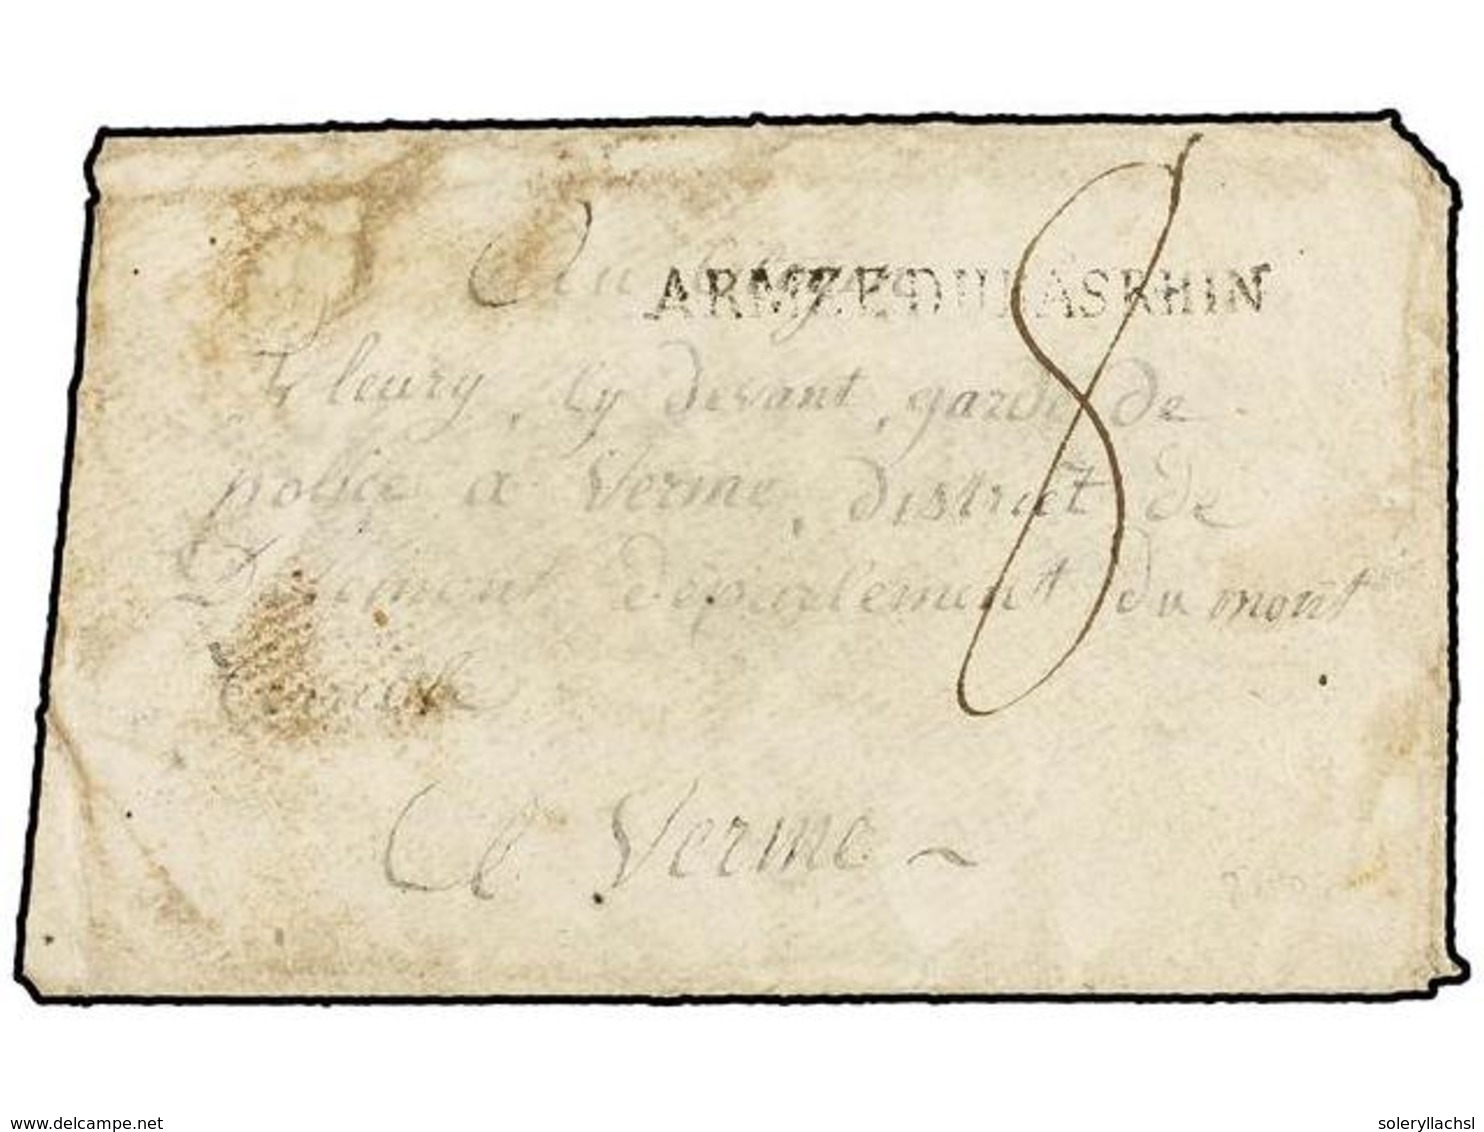 Au Citoyen
ARMÉE DU BAS RHIN
8
Fleury, Cy devant, garde de
police a Verme, district de
Delemont departement du mont
terrible
A Verme ~
www.delcampe.net
soleryllachsl